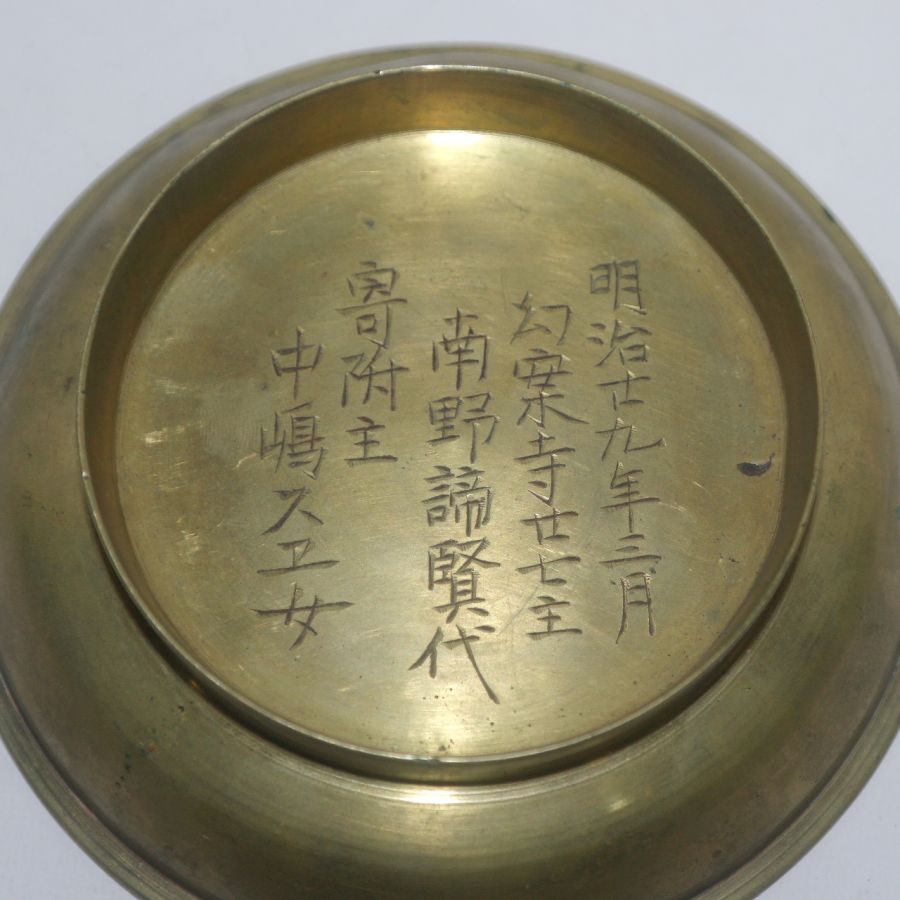 明治廿九年三月
寺廿七主
南野諦賢代
寄附主
中嶋スヱ女